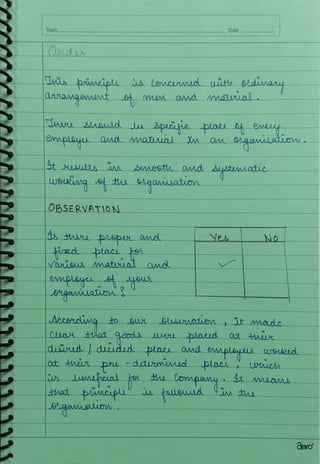 Topic
Date
Order
This principle is concerned with ordinary
arrangement of men and material.
There should be specific place of every
employee and material in an organisation.
It results in smooth and systematic
working of the organisation
OBSERVATION
Is there proper and
fixed place for
various material and
employee of your
organisation?
Yes
NO
✓
According to our observation, it made
clear that goods were placed at their
desired / decided place and employees worked
at their pre-determined place, which
is beneficial for the company. It means
that principle is followed in the
organisation.
aero